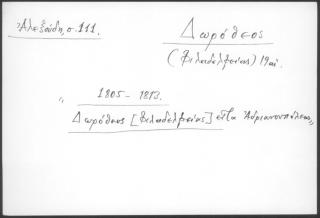 Ἀλεξούδη, σ. 111.
Δωρόθεος
(Φιλαδελφείας) 19 αἰ.
" 1805 - 1813.
Δωρόθεος [Φιλαδελφείας] εἶτα Ἀδριανουπόλεως "